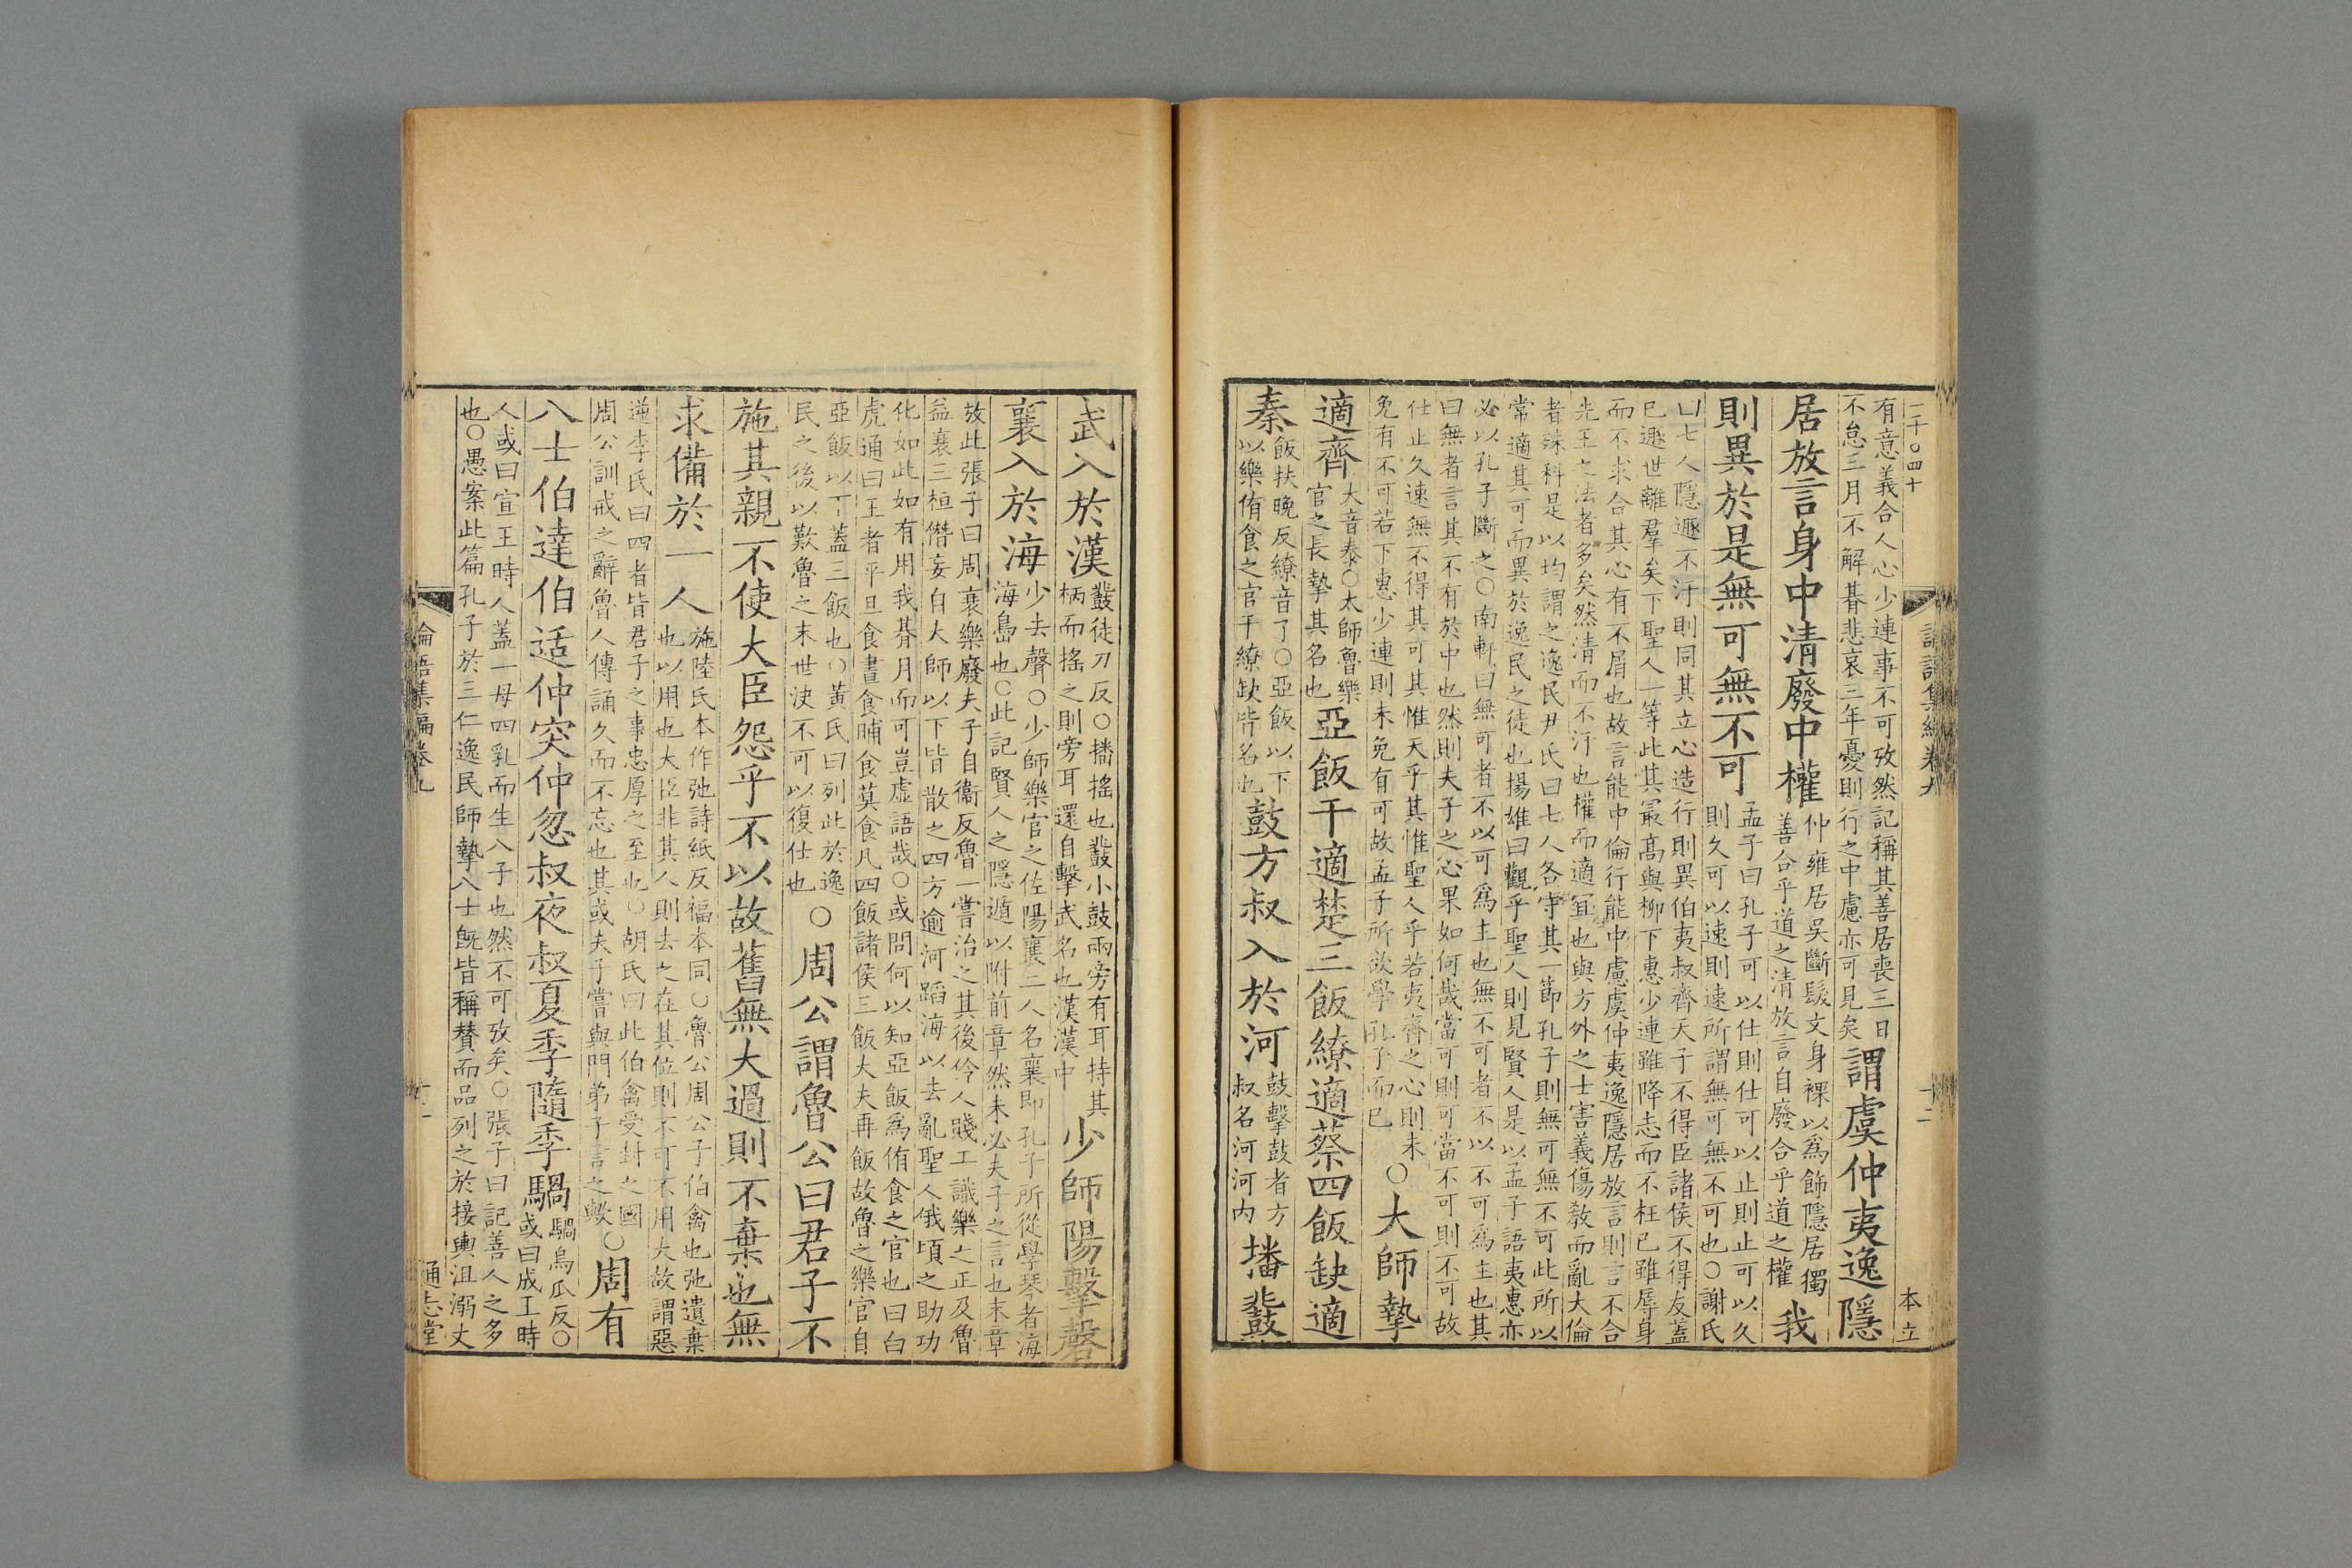 二千〇四十
本立
有意義合人心少連事不可攷然記稱其善居喪三日
不怠三月不解朞悲哀三年憂則行之中慮亦可見矣
謂虞仲夷逸隱
居放言身中清廢中權
仲雍居吳斷髮文身裸以爲飾隱居獨
善合乎道之清放言自廢合乎道之權
我
則異於是無可無不可
孟子曰孔子可以仕則仕可以止則止可以久
則久可以速則速所謂無可無不可也○謝氏
曰七人隱遯不汙則同其立心造行則異伯夷叔齊天子不得臣諸侯不得友蓋
已遯世離羣矣下聖人一等此其最高與柳下惠少連雖降志而不枉己雖辱身
而不求合其心有不屑也故言能中倫行能中慮虞仲夷逸隱居放言則言不合
先王之法者多矣然清而不汙也權而適宜也與方外之士害義傷教而亂大倫
者殊科是以均謂之逸民尹氏曰七人各守其一節孔子則無可無不可此所以
常適其可而異於逸民之徒也揚雄曰觀乎聖人則見賢人是以孟子語夷惠亦
必以孔子斷之○南軒曰無可者不以可爲主也無不可者不以不可爲主也其
曰無者言其不有於中也然則夫子之心果如何哉當可則可當不可則不可故
仕止久速無不得其可其惟天乎其惟聖人乎若夷齊之心則未
免有不可若下惠少連則未免有可故孟子所欲學孔子而已
○大師摯
適齊
大音泰○太師魯樂
官之長摯其名也
亞飯干適楚三飯繚適蔡四飯缺適
秦
飯扶晚反繚音了○亞飯以下
以樂侑食之官干繚缺皆名也
鼓方叔入於河
鼓擊鼓者方
叔名河河內
播鼗
武入於漢
鼗徒刀反○播搖也鼗小鼓兩旁有耳持其
柄而搖之則旁耳還自擊武名也漢漢中
少師陽擊磬
襄入於海
少去聲○少師樂官之佐陽襄二人名襄即孔子所從學琴者海
海島也○此記賢人之隱遁以附前章然未必夫子之言也末章
放此張子曰周衰樂廢夫子自衞反魯一嘗治之其後伶人賤工識樂之正及魯
益衰三桓僭妄自大師以下皆散之四方逾河蹈海以去亂聖人俄頃之助功
化如此如有用我朞月而可豈虛語哉○或問何以知亞飯爲侑食之官也曰白
虎通曰王者平旦食晝食晡食莫食凡四飯諸侯三飯大夫再飯故魯之樂官自
亞飯以下蓋三飯也○黃氏曰列此於逸
民之後以歎魯之末世決不可以復仕也
○周公謂魯公曰君子不
施其親不使大臣怨乎不以故舊無大過則不棄也無
求備於一人
施陸氏本作弛詩紙反福本同○魯公周公子伯禽也弛遺棄
也以用也大臣非其人則去之在其位則不可不用大故謂惡
逆李氏曰四者皆君子之事忠厚之至也○胡氏曰此伯禽受封之國
周公訓戒之辭魯人傳誦久而不忘也其或夫子嘗與門弟子言之歟
○周有
八士伯達伯适仲突仲忽叔夜叔夏季隨季騧
騧烏瓜反○
或曰成王時
人或曰宣王時人蓋一母四乳而生八子也然不可攷矣○張子曰記善人之多
也○愚案此篇孔子於三仁逸民師摯八士既皆稱贊而品列之於接輿沮溺丈
論語集編卷九
十二
通志堂